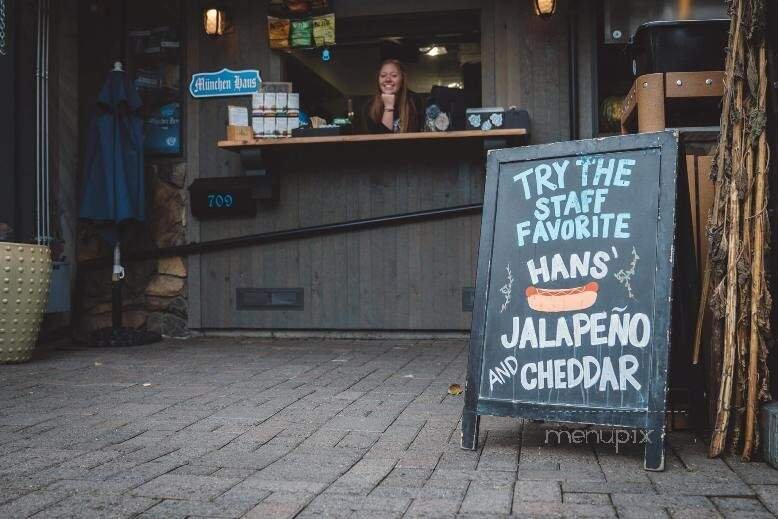 München Haus
709
TRY THE
STAFF
FAVORITE
HANS'
JALAPEÑO
AND CHEDDAR
menupix